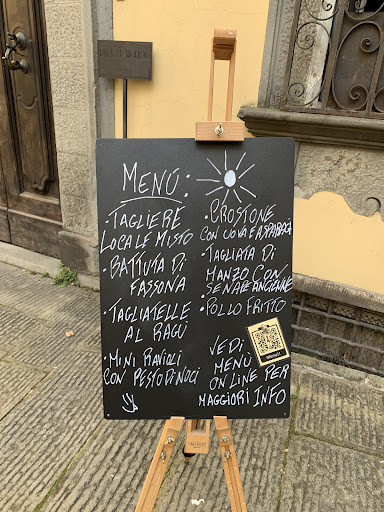 MENÚ:
• TAGLIERE
LOCALE MISTO
• BATTUTA DI
FASSONA
• TAGLIATELLE
AL RAGÙ
• MINI RAVIOLI
CON PESTO DI NOCI
• CROSTONE
CON UOVA E ASPARAGI
• TAGLIATA DI
MANZO CON
SENAPE ANCIENNE
• POLLO FRITTO
VEDI
MENÙ
ON LINE PER
MAGGIORI INFO